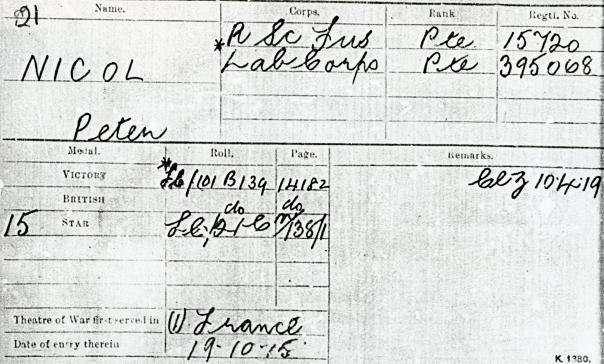 Name. Corps. Rank Regtl. No.
*R Sc Fus Pte 15720
NICOL Lab Corps Pte 395068
Peter
Medal. Roll. Page. Remarks.
VICTORY */101 B139 14182 10.4.19
BRITISH do do
15 STAR
Theatre of War first served in (1) France
Date of entry therein 19-10-15
K 1380.